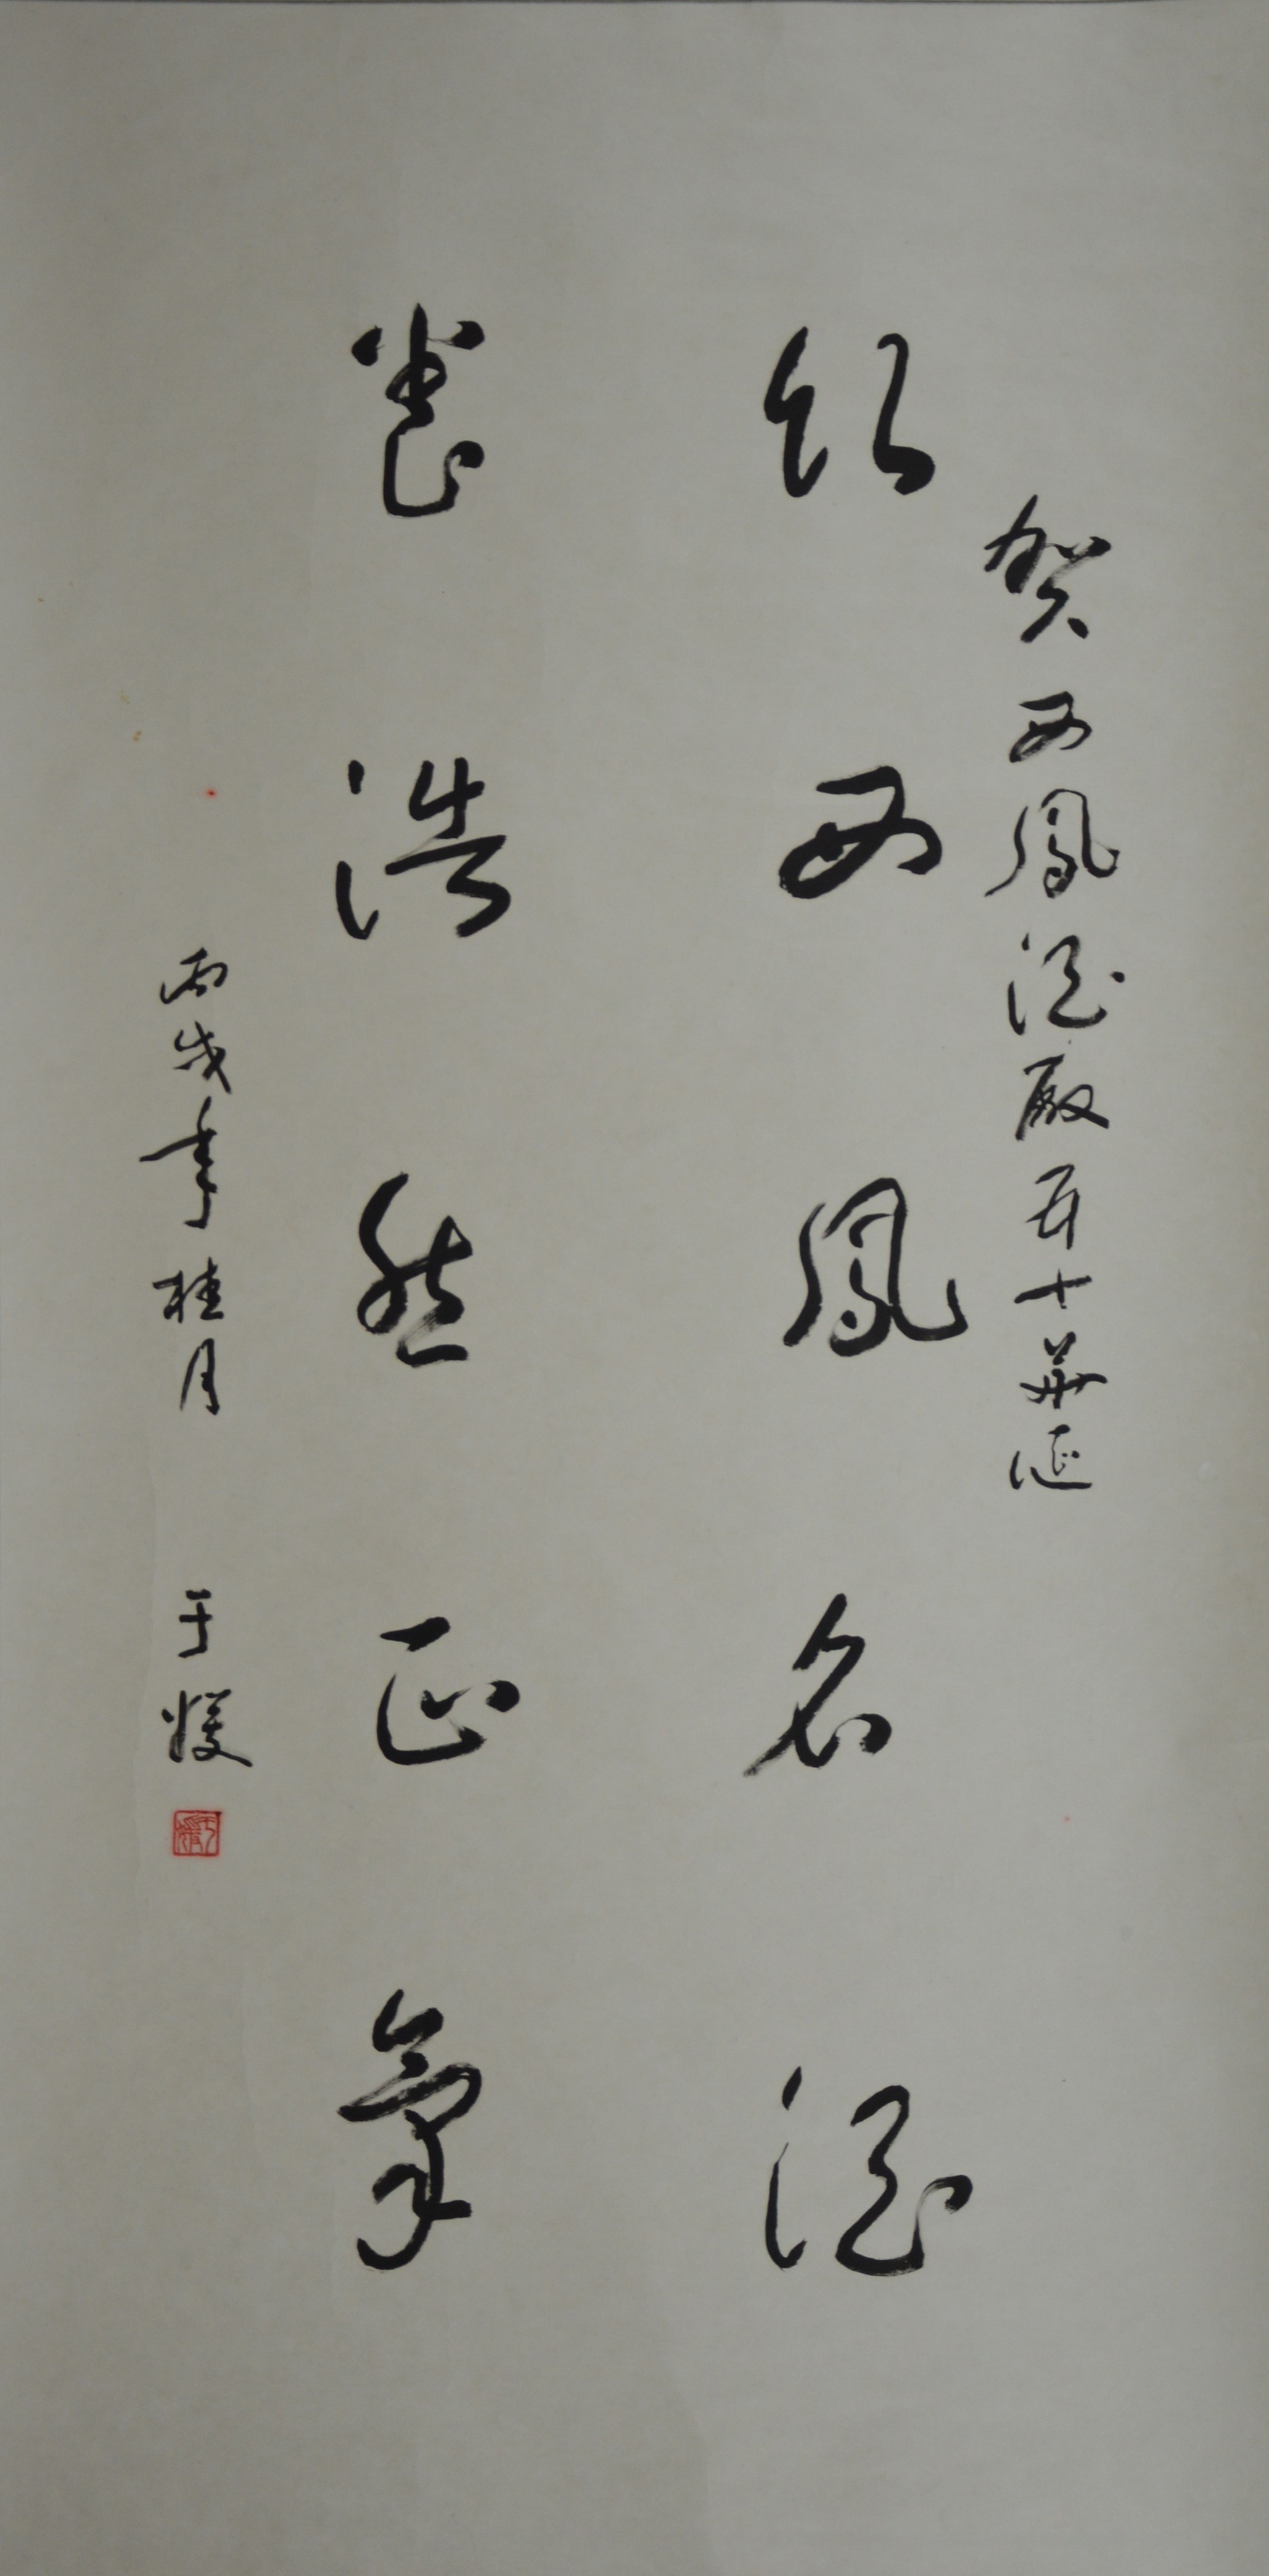 贺西凤酒厰五十华诞
饮西凤名酒
养浩然正氣
丙戌年桂月
于媛